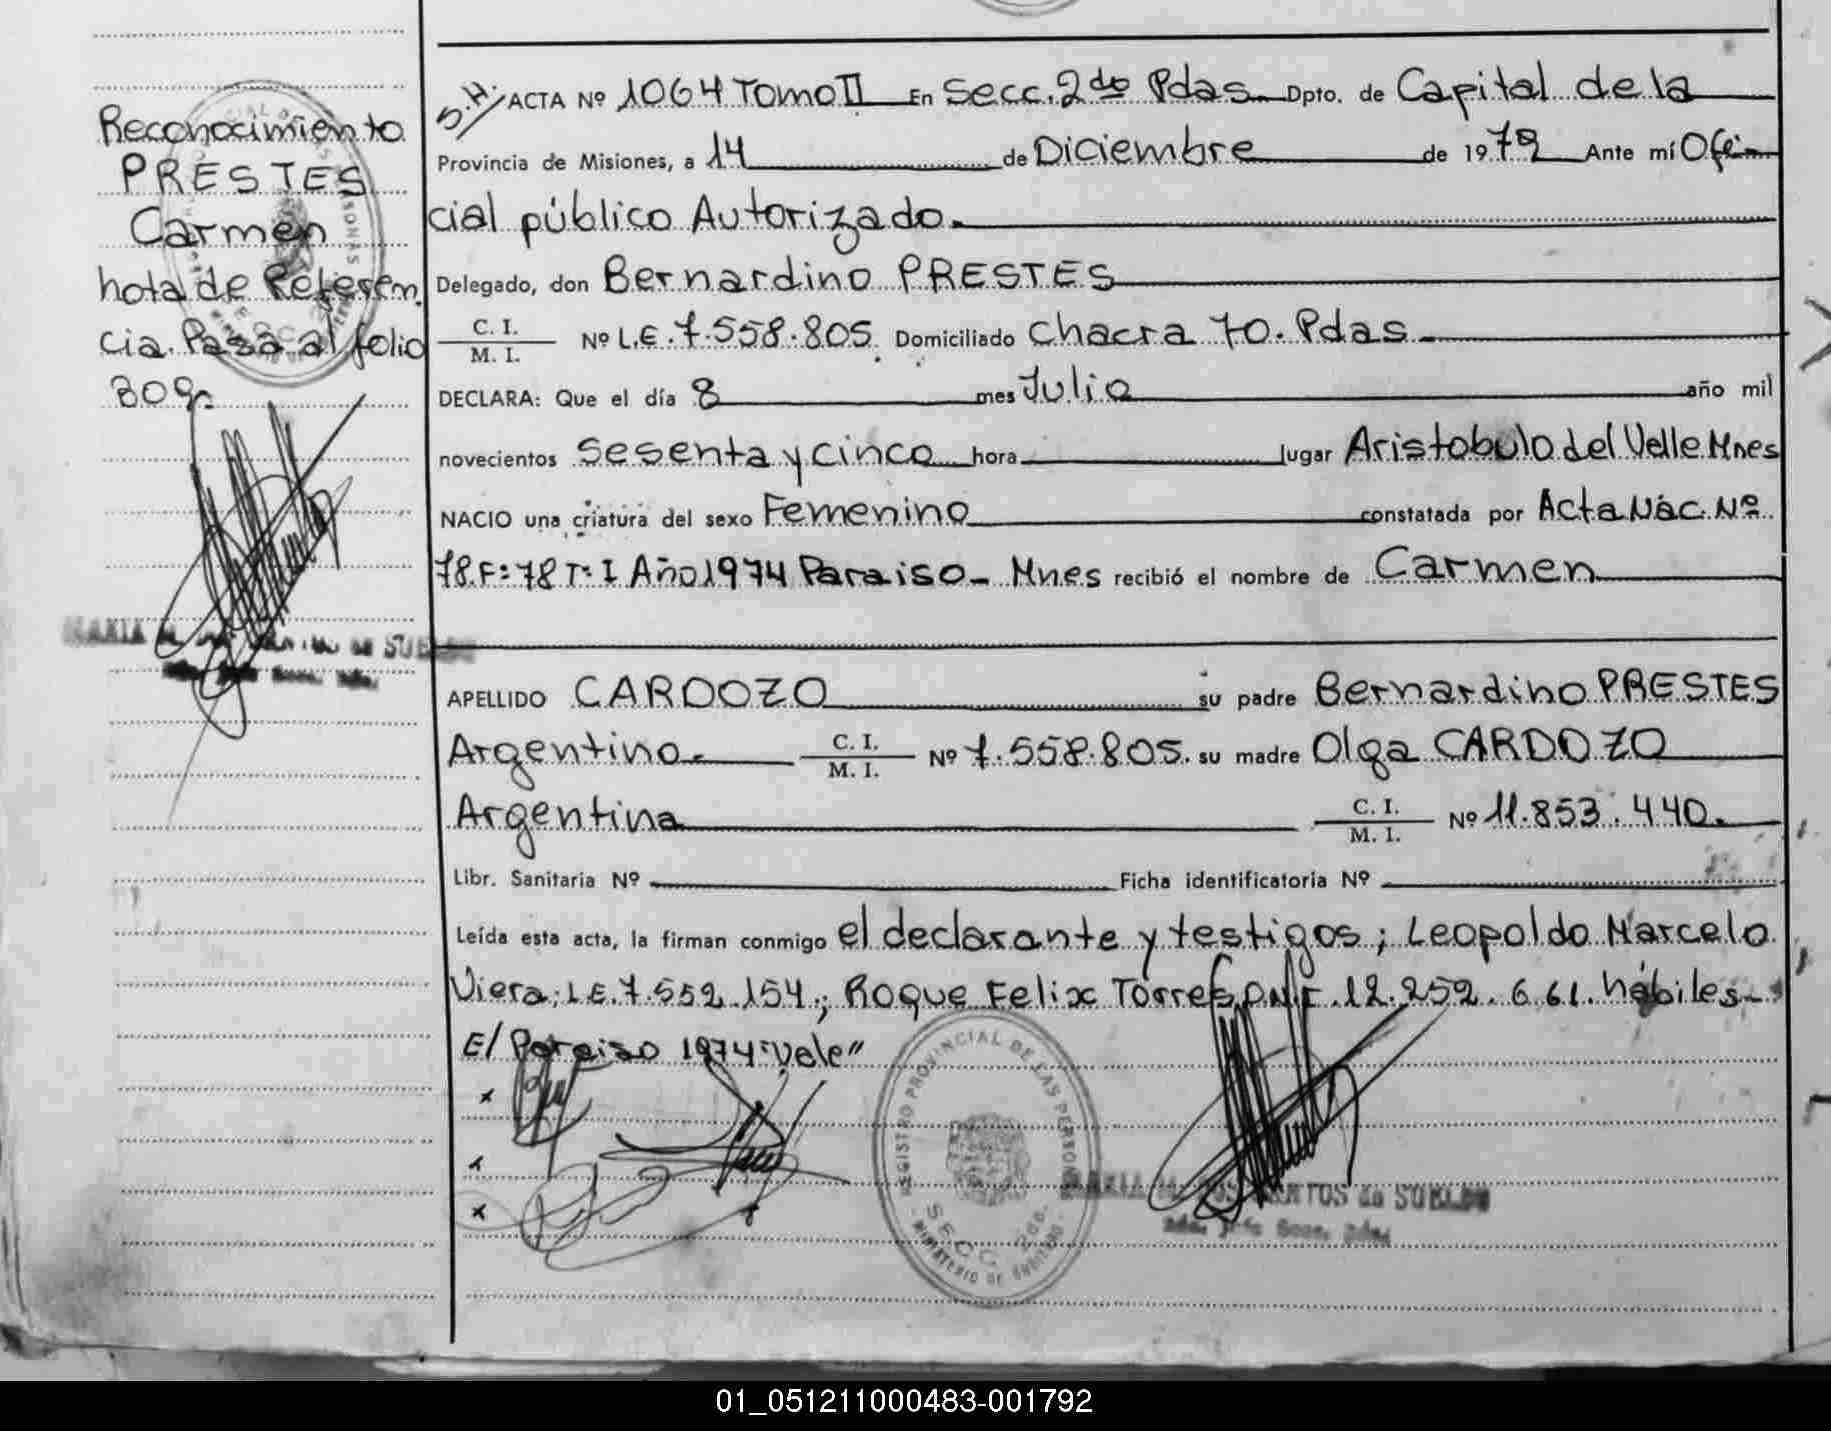 Reconocimiento
PRESTES
Carmen
nota de Referen
cia. Pasa al folio
309.
S.H. ACTA Nº 1064 Tomo II En Secc. 2da Pdas. Dpto. de Capital de la
Provincia de Misiones, a 14 de Diciembre de 1979 Ante mí Ofi-
cial público Autorizado.
Delegado, don Bernardino PRESTES
C. I.
M. I. Nº L.E. 7.558.805. Domiciliado Chacra 70. Pdas.
DECLARA: Que el día 8 mes Julio año mil
novecientos sesenta y cinco hora lugar Aristobulo del Valle Mnes
NACIO una criatura del sexo Femenino constatada por Acta Nác. Nº
78. F: 78 T: I Año 1974 Paraiso - Mnes recibió el nombre de Carmen
APELLIDO CARDOZO su padre Bernardino PRESTES
Argentino. C. I.
M. I. Nº 7.558.805. su madre Olga CARDOZO
Argentina C. I.
M. I. Nº 11.853.440.
Libr. Sanitaria Nº Ficha identificatoria Nº
Leída esta acta, la firman conmigo el declarante y testigos; Leopoldo Marcelo
Viera; L.E. 7.552.154; Roque Felix Torres, D.N.I. 12.252.661. hábiles-
E/ Paraiso 1974 "Vale"
REGISTRO PROVINCIAL DE LAS PERSONAS
SECC. 2da.
MINISTERIO DE GOBIERNO
de SUELDO
01_051211000483-001792